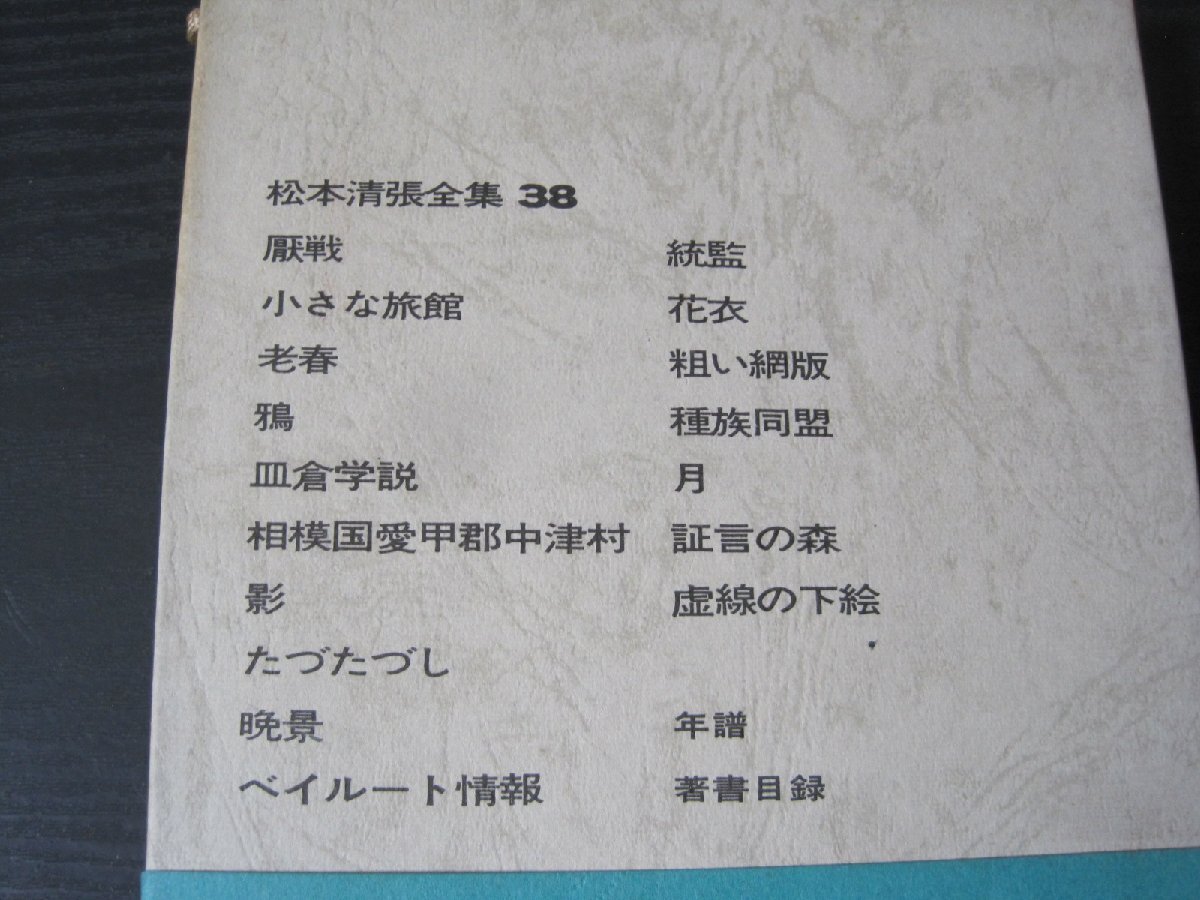 松本清張全集 38
厭戦
小さな旅館
老春
鴉
皿倉学説
相模国愛甲郡中津村
影
たづたづし
晩景
ベイルート情報
統監
花衣
粗い網版
種族同盟
月
証言の森
虚線の下絵
年譜
著書目録